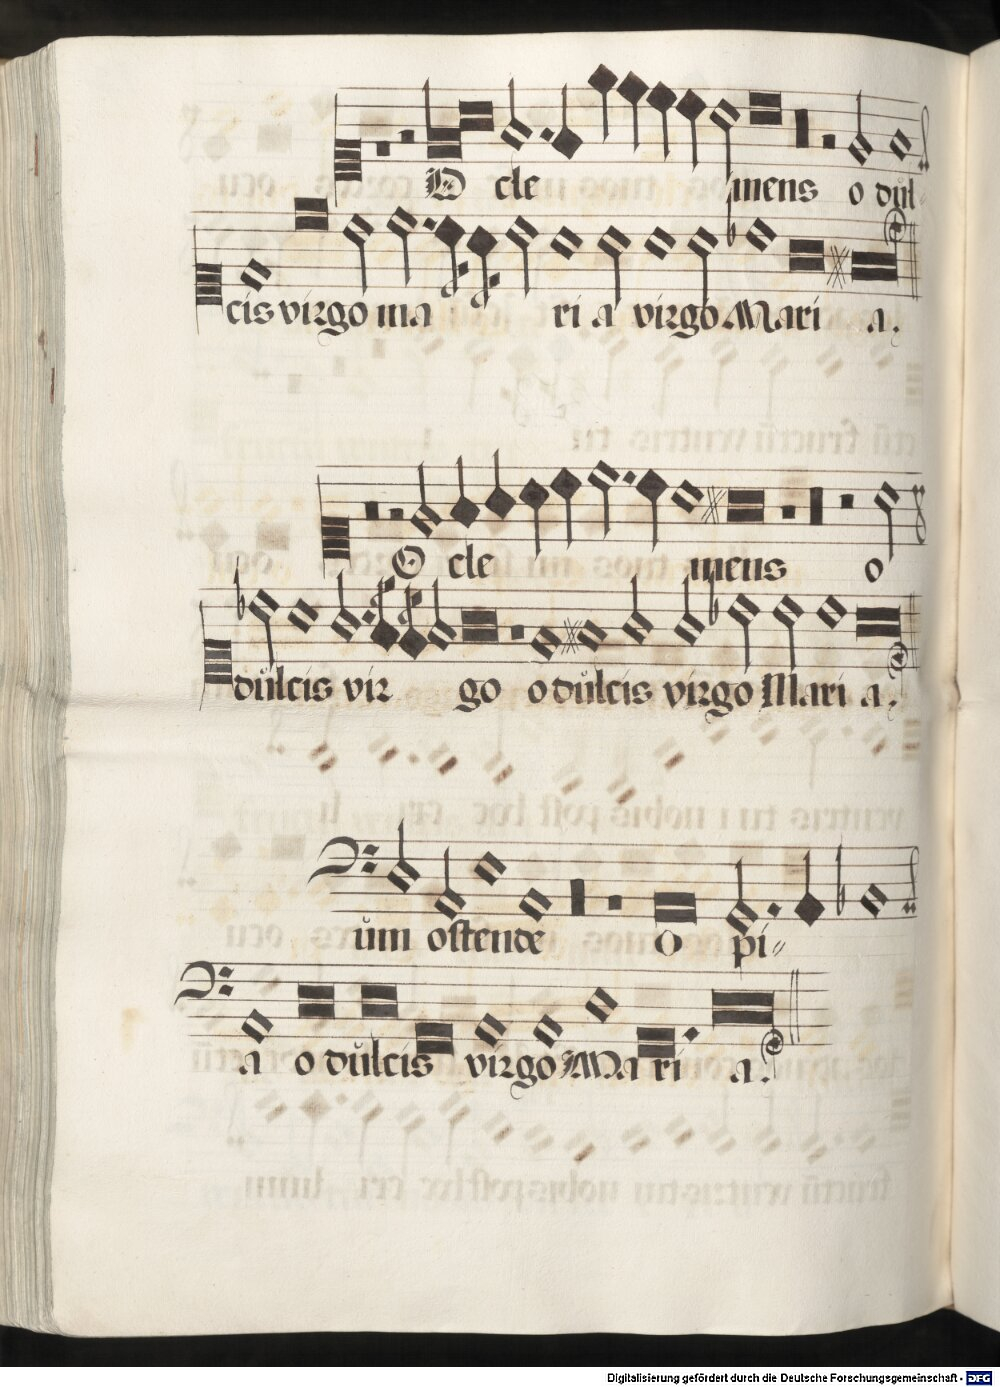 O cle mens o důl-
cis virgo ma ri a virgo Mari a.
O cle mens o
důlcis vir go o důlcis virgo Mari a.
ům ostende O pi=
a o důlcis virgo Ma ri a.
Digitalisierung gefördert durch die Deutsche Forschungsgemeinschaft - DFG